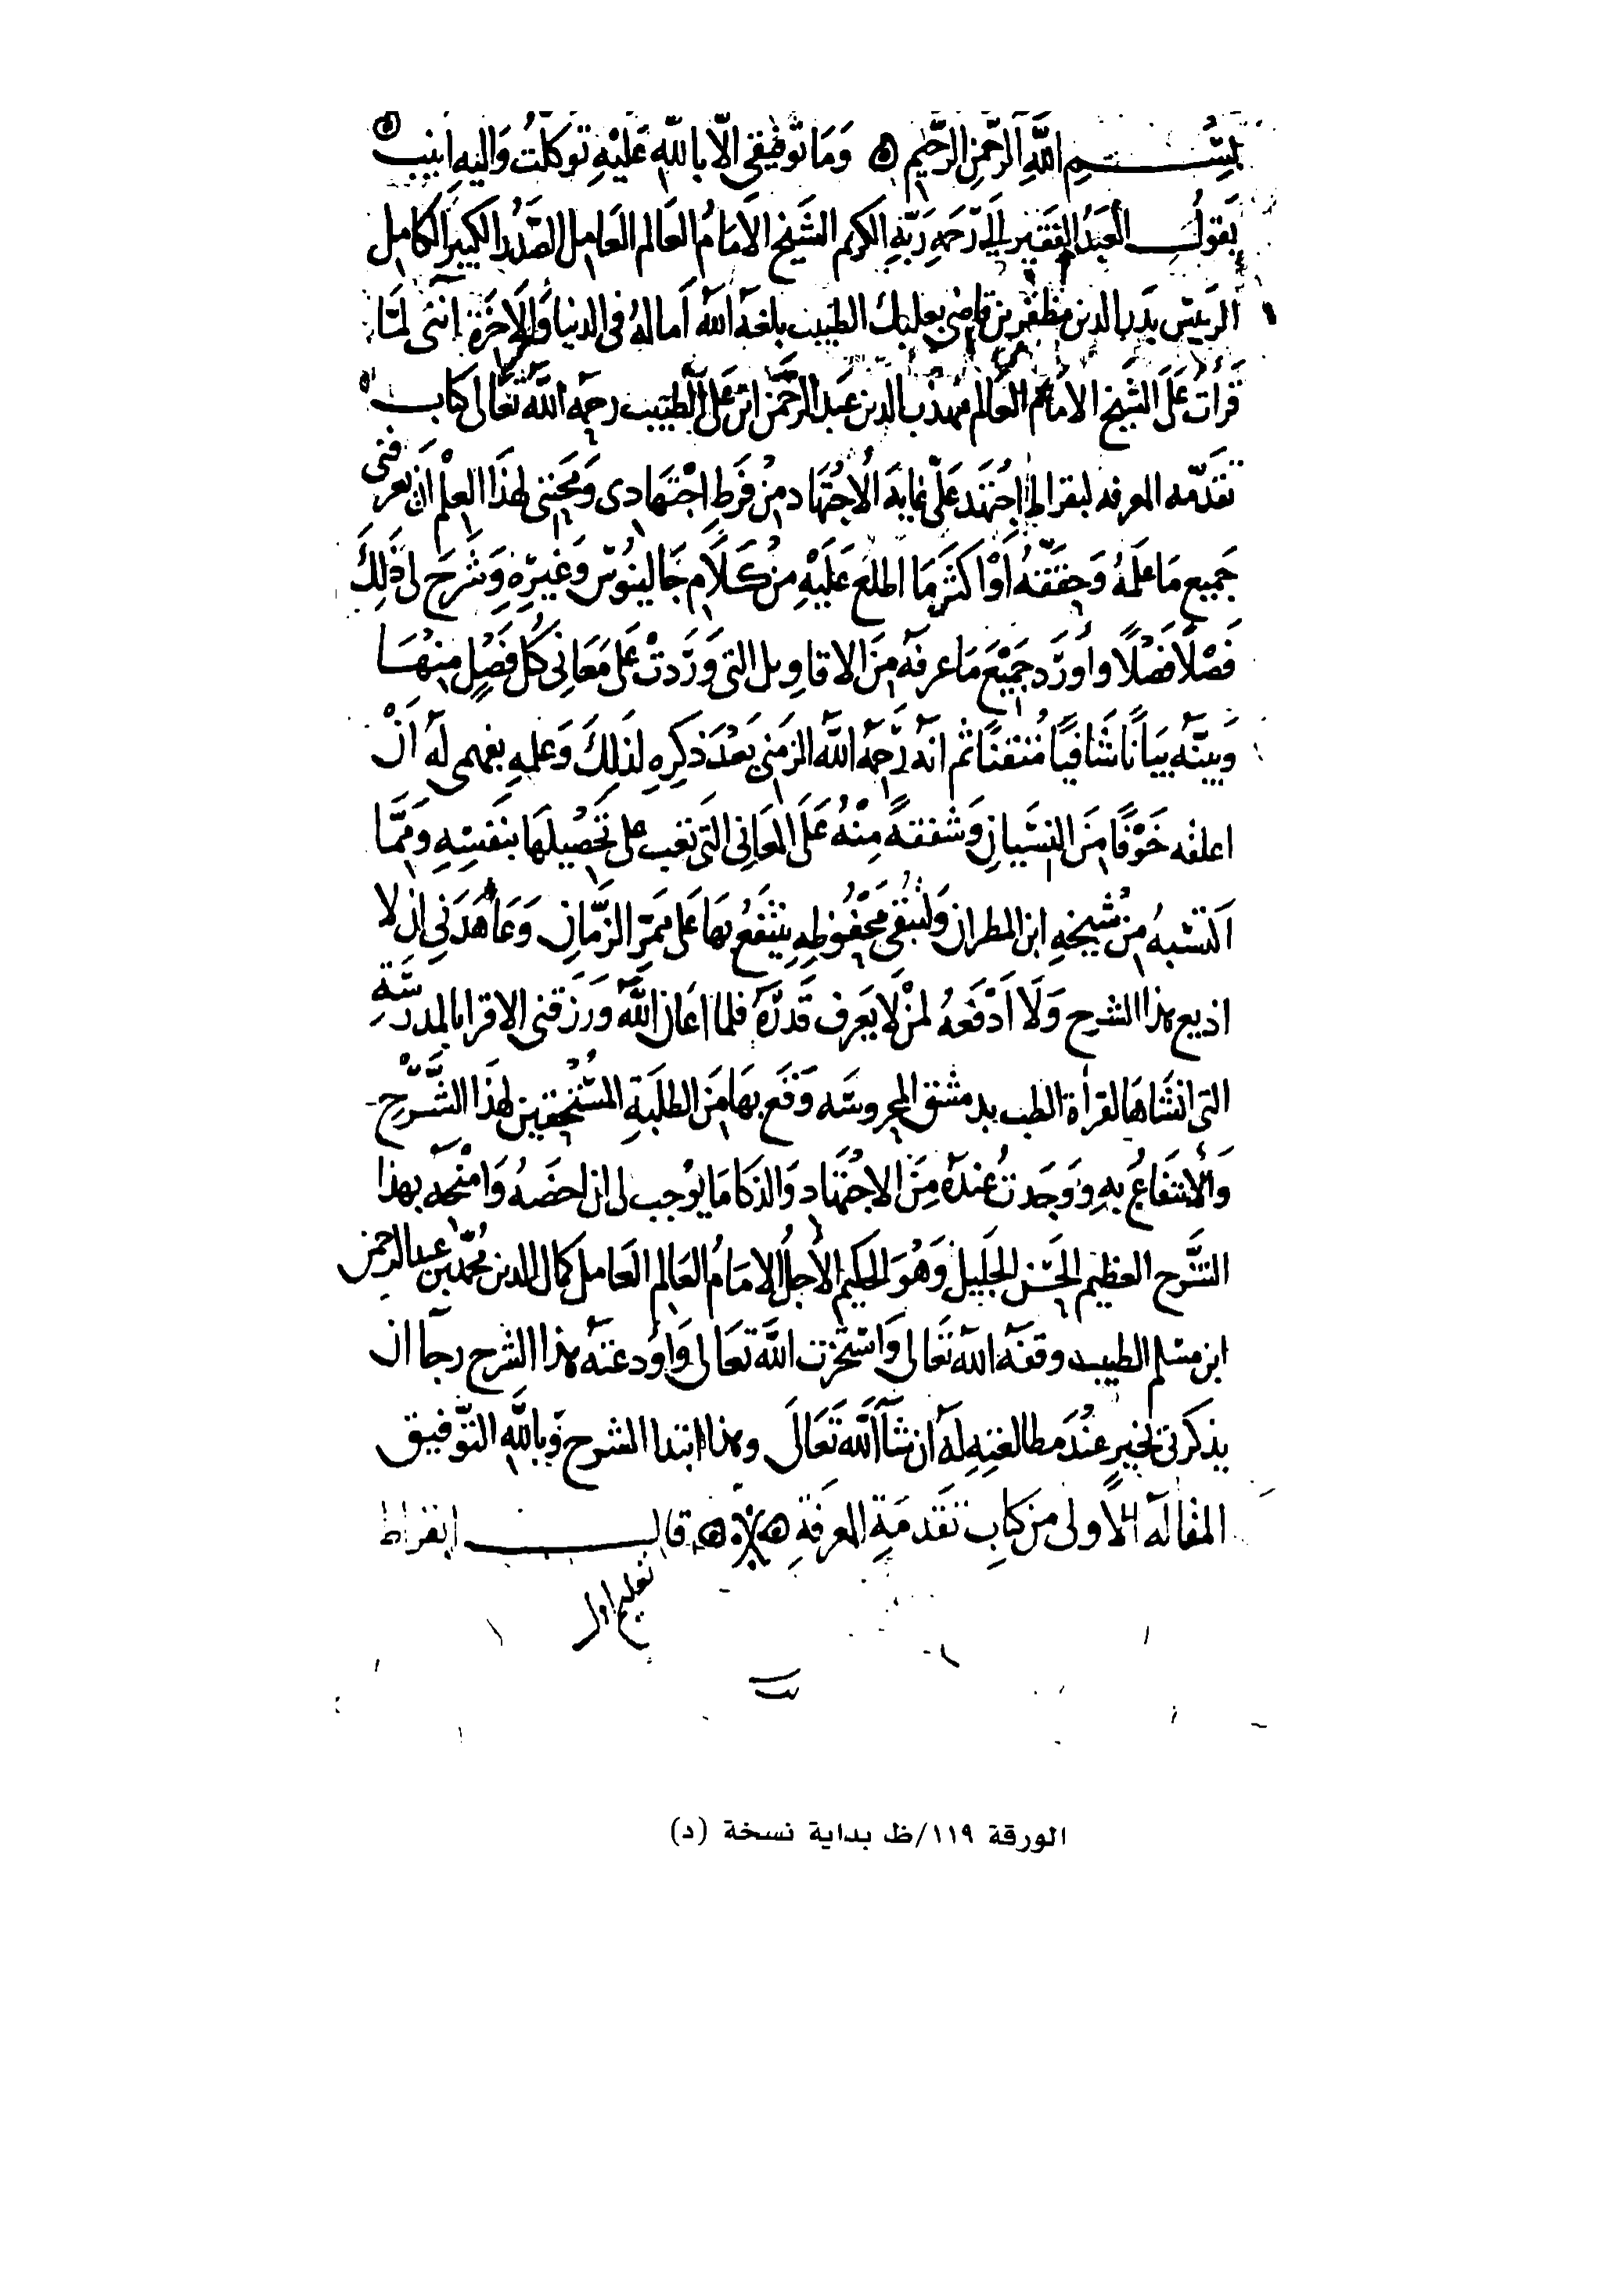 بِسْمِ اللَّهِ الرَّحْمَنِ الرَّحِيمِ ۞ وَمَا تَوْفِيقِي إِلَّا بِاللَّهِ عَلَيْهِ تَوَكَّلْتُ وَالَيْهِ انيب
يَقُولُ العَبْدُ الفَقِير إلى رَحمَةِ رَبِّهِ الكَرِيم الشَّيخ الامَامُ العَالم العَامِل الصَّدْر الكبير الكامِل
الرئيس بَدر الدين مظفر بن قاضي بعلبك الطبيب بلغه الله آماله في الدنيا وَالآخِرَة إنني لمَّا
قَرَأتُ عَلَى الشَّيْخ الامَام العَالم مهذب الدين عَبد الرَّحمن ابن عَلي الطبيب رحمه الله تعَالى كتاب
تَقدمَه المعرفه لبقراط اجْتَهَدَ عَلَيَّ غايَة الاجْتِهَاد مِنْ فَرَطِ اجْتهَادى وَمحبتى لِهَذَا العِلْم ان يعرفنى
جَمِيع مَا عَلِمَهُ وَحققه أوْ اكثَر مَا اطلع عَلَيْهِ مِنْ كَلَام جَالينُوس وَغَيْرِهِ وَشرَحَ لى ذَلِكَ
فَصْلًا فَصْلًا وأورَد جَمِيْعَ مَا عرفه مِنَ الاقاويل التى وَرَدتْ عَلى مَعَانى كُل فَصْل مِنْهَا
وَبينه بَيَانًا شَافيًا مُتقنًا ثم انه رَحِمهُ الله الزمنى بَعْدَ ذِكرِهِ لذَلِكَ وَعلمِهِ بفهمى لهُ انْ
اعلقه خَوْفًا مِنَ النسْيَان وَشفقةً مِنْهُ عَلَى المعَاني التى تعب على تحصِيلهَا بنَفسِهِ وَممَّا
اكتسَبهُ مِنْ شيخِهِ ابن المطران وَلتبقى محفُوظه ينتَفعُ بهَا عَلى ممَرِّ الزَّمَان وَعَاهَدَنى ان لا
اذيع هذا الشرح وَلَا أدْفَعهُ لِمَنْ لَا يَعرف قَدْرَهُ فلما اعَان الله وَرَزقنى الاقرا بالمدرَسَةِ
التى انشَاهَا لقرأة الطب بدمشق المحروسَه وَقَع بهَا مِنَ الطلبَةِ المُسْتحِقين لهَذَا الشَّرْحِ
وَالانتفَاعُ بهِ وَوَجَدتُ عِندهُ مِنَ الاجْتهَاد وَالذكا مَا يوُجب لى ان اخصَهُ وَامْنَحَه بهذا
الشَّرح العظيم الحَسَن الجَلِيل وَهُوَ الحكيم الأجل الامَامُ العَالم العَامل كمال الدين مُحمَّد بن عبد الرحمن
ابن مسلم الطبيب وفقهُ اللهُ تَعَالى وَاسْتخرت الله تَعَالى وَاودعتهُ هذا الشرح رجآ ان
يذكرنى بخير عِنْدَ مطالعتِه لهُ ان شآ الله تَعَالَى وهذا ابتدا الشرح وَبالله التوفيق
المقاله الأولى من كتاب تَقدمَةِ المعرفَةِ ۞ ۞ قال ابقراط
تعليم اول
الورقة ١١٩/ظ بداية نسخة (د)